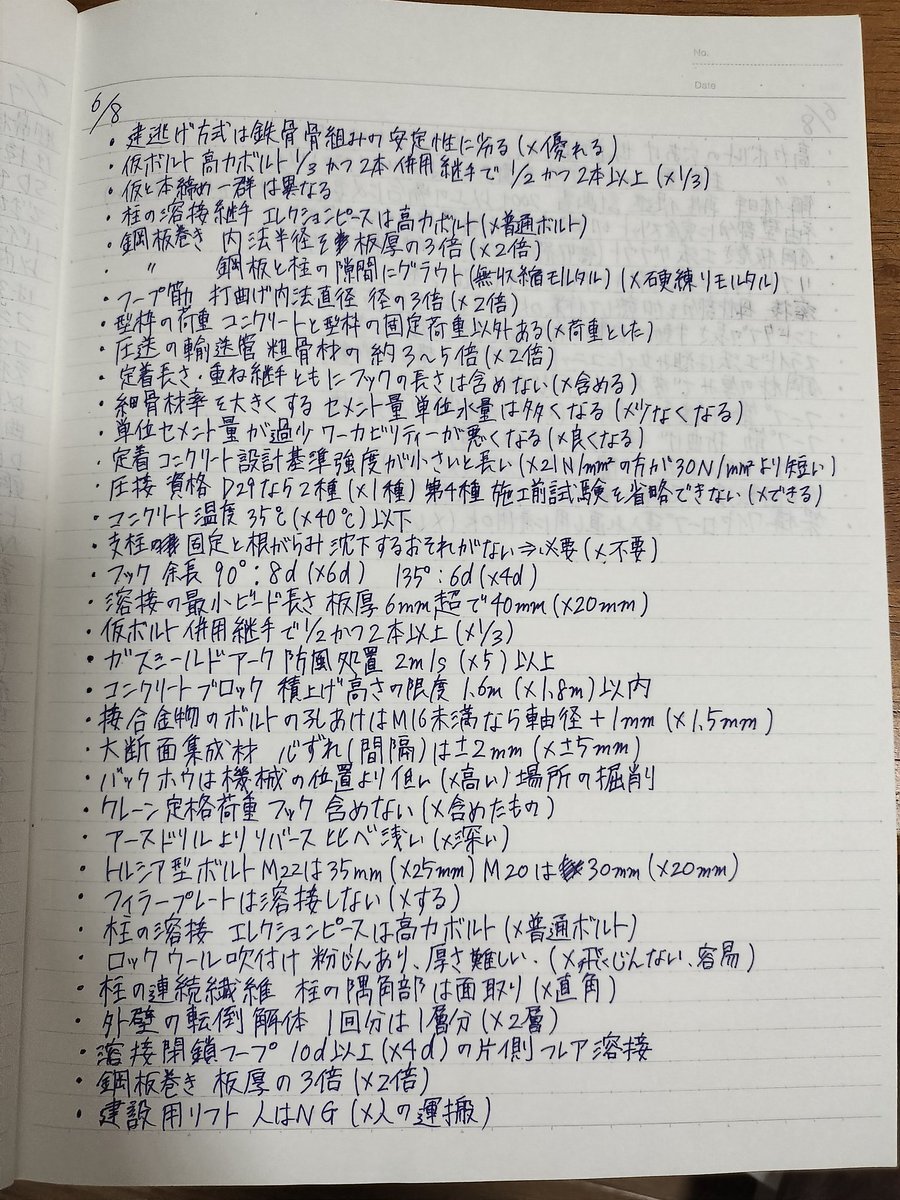 No.
Date
6/8
・建逃げ方式は鉄骨骨組みの安定性に劣る(×優れる)
・仮ボルト 高力ボルト 1/3 かつ2本 併用継手で 1/2 かつ2本以上 (×1/3)
・仮と本締め一群は異なる
・柱の溶接継手 エレクションピースは高力ボルト(×普通ボルト)
・鋼板巻き 内法半径を板厚の3倍(×2倍)
・〃 鋼板と柱の隙間にグラウト(無収縮モルタル) (×硬練りモルタル)
・フープ筋 打曲げ内法直径 径の3倍(×2倍)
・型枠の荷重 コンクリートと型枠の固定荷重以外ある(×荷重とした)
・圧送の輸送管 粗骨材の約3~5倍(×2倍)
・定着長さ・重ね継手ともにフックの長さは含めない(×含める)
・細骨材率を大きくする セメント量 単位水量は多くなる(×少なくなる)
・単位セメント量が過少 ワーカビリティーが悪くなる(×良くなる)
・定着 コンクリート設計基準強度が小さいと長い(×21N/mm²の方が30N/mm²より短い)
・圧接 資格 D29なら2種(×1種) 第4種 施工前試験を省略できない(×できる)
・コンクリート温度 35℃(×40℃)以下
・支柱の固定と根がらみ 沈下するおそれがない⇒必要(×不要)
・フック 余長 90°:8d(×6d) 135°:6d(×4d)
・溶接の最小ビード長さ 板厚6mm超で40mm(×20mm)
・仮ボルト併用継手で1/2かつ2本以上(×1/3)
・ガスシールドアーク 防風処置 2m/s(×5)以上
・コンクリートブロック 積上げ高さの限度 1.6m(×1.8m)以内
・接合金物のボルトの孔あけはM16未満なら軸径+1mm(×1.5mm)
・大断面集成材 心ずれ(間隔)は±2mm(×±5mm)
・バックホウは機械の位置より低い(×高い)場所の掘削
・クレーン定格荷重 フック 含めない(×含めたもの)
・アースドリルよりリバース 比べ浅い(×深い)
・トルシア型ボルトM22は35mm(×25mm) M20は30mm(×20mm)
・フィラープレートは溶接しない(×する)
・柱の溶接 エレクションピースは高力ボルト(×普通ボルト)
・ロックウール吹付け 粉じんあり、厚さ難しい.(×飛くじんない、容易)
・柱の連続繊維 柱の隅角部は面取り(×直角)
・外壁の転倒解体 1回分は1層分(×2層)
・溶接閉鎖フープ 10d以上(×4d)の片側フレア溶接
・鋼板巻き 板厚の3倍(×2倍)
・建設用リフト 人はNG(×人の運搬)